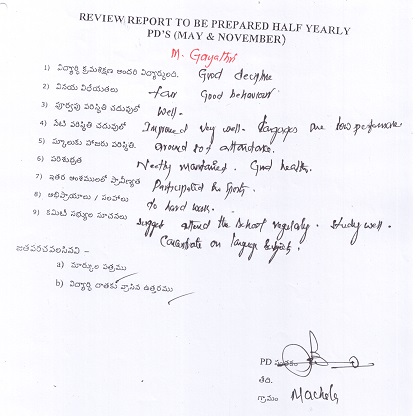 REVIEW REPORT TO BE PREPARED HALF YEARLY
PD'S (MAY & NOVEMBER)
M. Gayathri
1) విద్యార్థి క్రమశిక్షణ అందరి విద్యార్థులది. Good decipline
2) వినయ విధేయతలు fair Good behaviour
3) పూర్వపు పరిస్థితి చదువులో Well.
4) నేటి పరిస్థితి చదువులో Improved very well. Languages are low performance
5) స్కూలుకు హాజరు పరిస్థితి. around of attendance.
6) పరిశుభ్రత Neatly maintained. Good health.
7) ఇతర అంశములలో ప్రావీణ్యత Participated the Sports.
8) అభిప్రాయాలు / సలహాలు do hard work.
9) కమిటి సభ్యుల సూచనలు suggest attend the school regularly. Study well.
Concentrate on language subjects.
జతపరచవలసినవి –
a) మార్కుల పత్రము
b) విద్యార్థి దాతకు వ్రాసిన ఉత్తరము
PD
తేది.
గ్రామం Machela